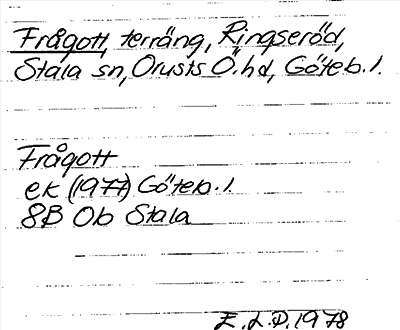 Frågott, terräng, Ringseröd,
Stala sn, Orusts Ö. hd, Göteb. l.
Frågott
ek (1977) Göteb. l
8B Ob Stala
E.L.P. 1978